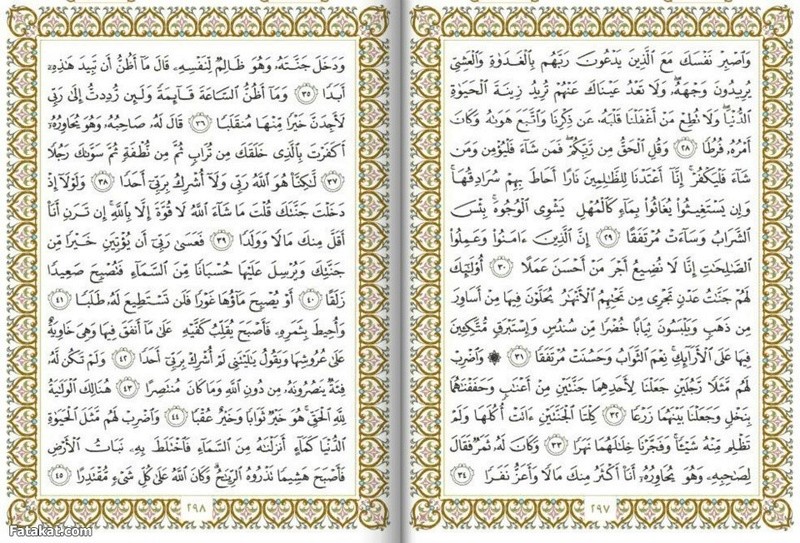 وَٱصۡبِرۡ نَفۡسَكَ مَعَ ٱلَّذِينَ يَدۡعُونَ رَبَّهُم بِٱلۡغَدَوٰةِ وَٱلۡعَشِيِّ
يُرِيدُونَ وَجۡهَهُۥۖ وَلَا تَعۡدُ عَيۡنَاكَ عَنۡهُمۡ تُرِيدُ زِينَةَ ٱلۡحَيَوٰةِ
ٱلدُّنۡيَاۖ وَلَا تُطِعۡ مَنۡ أَغۡفَلۡنَا قَلۡبَهُۥ عَن ذِكۡرِنَا وَٱتَّبَعَ هَوَىٰهُ وَكَانَ
أَمۡرُهُۥ فُرُطٗا ٢٨ وَقُلِ ٱلۡحَقُّ مِن رَّبِّكُمۡۖ فَمَن شَآءَ فَلۡيُؤۡمِن وَمَن
شَآءَ فَلۡيَكۡفُرۡۚ إِنَّآ أَعۡتَدۡنَا لِلظَّٰلِمِينَ نَارًا أَحَاطَ بِهِمۡ سُرَادِقُهَاۚ
وَإِن يَسۡتَغِيثُواْ يُغَاثُواْ بِمَآءٖ كَٱلۡمُهۡلِ يَشۡوِي ٱلۡوُجُوهَۚ بِئۡسَ
ٱلشَّرَابُ وَسَآءَتۡ مُرۡتَفَقًا ٢٩ إِنَّ ٱلَّذِينَ ءَامَنُواْ وَعَمِلُواْ
ٱلصَّٰلِحَٰتِ إِنَّا لَا نُضِيعُ أَجۡرَ مَنۡ أَحۡسَنَ عَمَلًا ٣٠ أُوْلَٰٓئِكَ
لَهُمۡ جَنَّٰتُ عَدۡنٖ تَجۡرِي مِن تَحۡتِهِمُ ٱلۡأَنۡهَٰرُ يُحَلَّوۡنَ فِيهَا مِنۡ أَسَاوِرَ
مِن ذَهَبٖ وَيَلۡبَسُونَ ثِيَابًا خُضۡرٗا مِّن سُندُسٖ وَإِسۡتَبۡرَقٖ مُّتَّكِـِٔينَ
فِيهَا عَلَى ٱلۡأَرَآئِكِۚ نِعۡمَ ٱلثَّوَابُ وَحَسُنَتۡ مُرۡتَفَقٗا ٣١ ۞ وَٱضۡرِبۡ
لَهُم مَّثَلٗا رَّجُلَيۡنِ جَعَلۡنَا لِأَحَدِهِمَا جَنَّتَيۡنِ مِنۡ أَعۡنَٰبٖ وَحَفَفۡنَٰهُمَا
بِنَخۡلٖ وَجَعَلۡنَا بَيۡنَهُمَا زَرۡعٗا ٣٢ كِلۡتَا ٱلۡجَنَّتَيۡنِ ءَاتَتۡ أُكُلَهَا وَلَمۡ
تَظۡلِم مِّنۡهُ شَيۡـٔٗاۚ وَفَجَّرۡنَا خِلَٰلَهُمَا نَهَرٗا ٣٣ وَكَانَ لَهُۥ ثَمَرٞ فَقَالَ
لِصَٰحِبِهِۦ وَهُوَ يُحَاوِرُهُۥٓ أَنَا۠ أَكۡثَرُ مِنكَ مَالٗا وَأَعَزُّ نَفَرٗا ٣٤
٢٩٧
وَدَخَلَ جَنَّتَهُۥ وَهُوَ ظَالِمٞ لِّنَفۡسِهِۦ قَالَ مَآ أَظُنُّ أَن تَبِيدَ هَٰذِهِۦٓ
أَبَدٗا ٣٥ وَمَآ أَظُنُّ ٱلسَّاعَةَ قَآئِمَةٗ وَلَئِن رُّدِدتُّ إِلَىٰ رَبِّي
لَأَجِدَنَّ خَيۡرٗا مِّنۡهَا مُنقَلَبٗا ٣٦ قَالَ لَهُۥ صَاحِبُهُۥ وَهُوَ يُحَاوِرُهُۥٓ
أَكَفَرۡتَ بِٱلَّذِي خَلَقَكَ مِن تُرَابٖ ثُمَّ مِن نُّطۡفَةٖ ثُمَّ سَوَّىٰكَ رَجُلٗا
٣٧ لَّٰكِنَّا۠ هُوَ ٱللَّهُ رَبِّي وَلَآ أُشۡرِكُ بِرَبِّيٓ أَحَدٗا ٣٨ وَلَوۡلَآ إِذۡ
دَخَلۡتَ جَنَّتَكَ قُلۡتَ مَا شَآءَ ٱللَّهُ لَا قُوَّةَ إِلَّا بِٱللَّهِۚ إِن تَرَنِ أَنَا۠
أَقَلَّ مِنكَ مَالٗا وَوَلَدٗا ٣٩ فَعَسَىٰ رَبِّيٓ أَن يُؤۡتِيَنِ خَيۡرٗا مِّن
جَنَّتِكَ وَيُرۡسِلَ عَلَيۡهَا حُسۡبَانٗا مِّنَ ٱلسَّمَآءِ فَتُصۡبِحَ صَعِيدٗا
زَلَقًا ٤٠ أَوۡ يُصۡبِحَ مَآؤُهَا غَوۡرٗا فَلَن تَسۡتَطِيعَ لَهُۥ طَلَبٗا ٤١
وَأُحِيطَ بِثَمَرِهِۦ فَأَصۡبَحَ يُقَلِّبُ كَفَّيۡهِ عَلَىٰ مَآ أَنفَقَ فِيهَا وَهِيَ خَاوِيَةٌ
عَلَىٰ عُرُوشِهَا وَيَقُولُ يَٰلَيۡتَنِي لَمۡ أُشۡرِكۡ بِرَبِّيٓ أَحَدٗا ٤٢ وَلَمۡ تَكُن لَّهُۥ
فِئَةٞ يَنصُرُونَهُۥ مِن دُونِ ٱللَّهِ وَمَا كَانَ مُنتَصِرًا ٤٣ هُنَالِكَ ٱلۡوَلَٰيَةُ
لِلَّهِ ٱلۡحَقِّۚ هُوَ خَيۡرٞ ثَوَابٗا وَخَيۡرٌ عُقۡبٗا ٤٤ وَٱضۡرِبۡ لَهُم مَّثَلَ ٱلۡحَيَوٰةِ
ٱلدُّنۡيَا كَمَآءٍ أَنزَلۡنَٰهُ مِنَ ٱلسَّمَآءِ فَٱخۡتَلَطَ بِهِۦ نَبَاتُ ٱلۡأَرۡضِ
فَأَصۡبَحَ هَشِيمٗا تَذۡرُوهُ ٱلرِّيَٰحُۗ وَكَانَ ٱللَّهُ عَلَىٰ كُلِّ شَيۡءٖ مُّقۡتَدِرًا ٤٥
٢٩٨
Fatakat.com